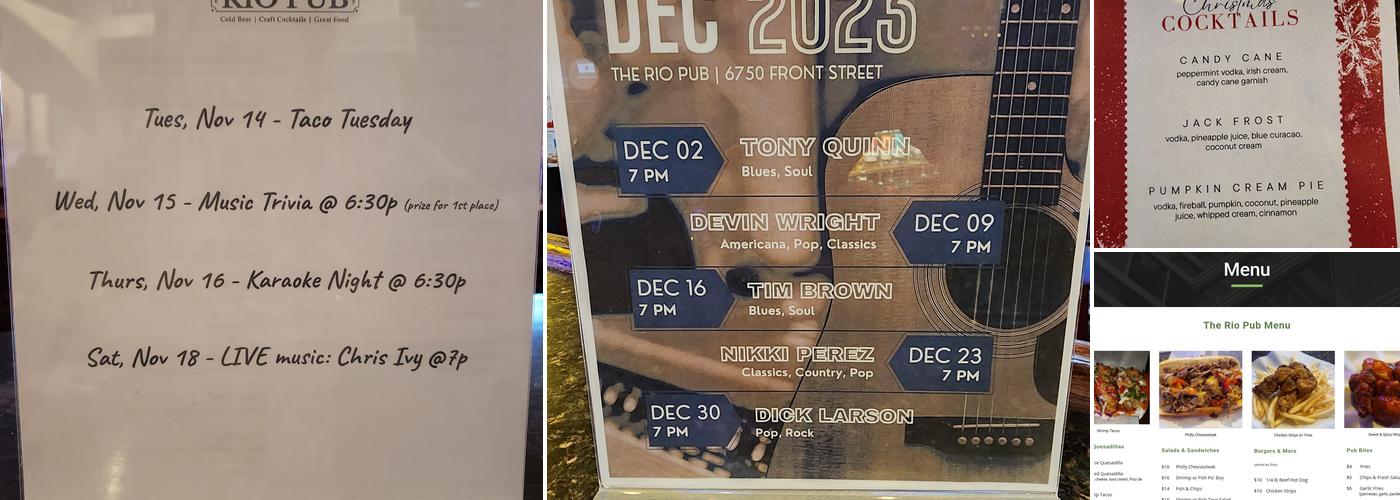 RIO PUB
Cold Beer | Craft Cocktails | Great Food
Tues, Nov 14 - Taco Tuesday
Wed, Nov 15 - Music Trivia @ 6:30p (prize for 1st place)
Thurs, Nov 16 - Karaoke Night @ 6:30p
Sat, Nov 18 - LIVE music: Chris Ivy @7p
DEC 2023
THE RIO PUB | 6750 FRONT STREET
DEC 02
7 PM
TONY QUINN
Blues, Soul
DEVIN WRIGHT
Americana, Pop, Classics
DEC 09
7 PM
DEC 16
7 PM
TIM BROWN
Blues, Soul
NIKKI PEREZ
Classics, Country, Pop
DEC 23
7 PM
DEC 30
7 PM
DICK LARSON
Pop, Rock
Christmas
COCKTAILS
CANDY CANE
peppermint vodka, irish cream,
candy cane garnish
JACK FROST
vodka, pineapple juice, blue curacao,
coconut cream
PUMPKIN CREAM PIE
vodka, fireball, pumpkin, coconut, pineapple
juice, whipped cream, cinnamon
Menu
The Rio Pub Menu
Shrimp Tacos
Philly Cheesesteak
Chicken Strips w/ Fries
Sweet & Spicy
Quesadillas
se Quesadilla
ed Quesadilla
cheese, sour cream, Pico de
Tacos
Salads & Sandwiches
$16 Philly Cheesesteak
$16 Shrimp or Fish Po' Boy
$14 Fish & Chips
Burgers & More
served w/ Fries
$10 1/4 lb Beef Hot Dog
$10 Chicken Strips
Pub Bites
$4 Fries
$6 Chips &
$6 Garlic Fries